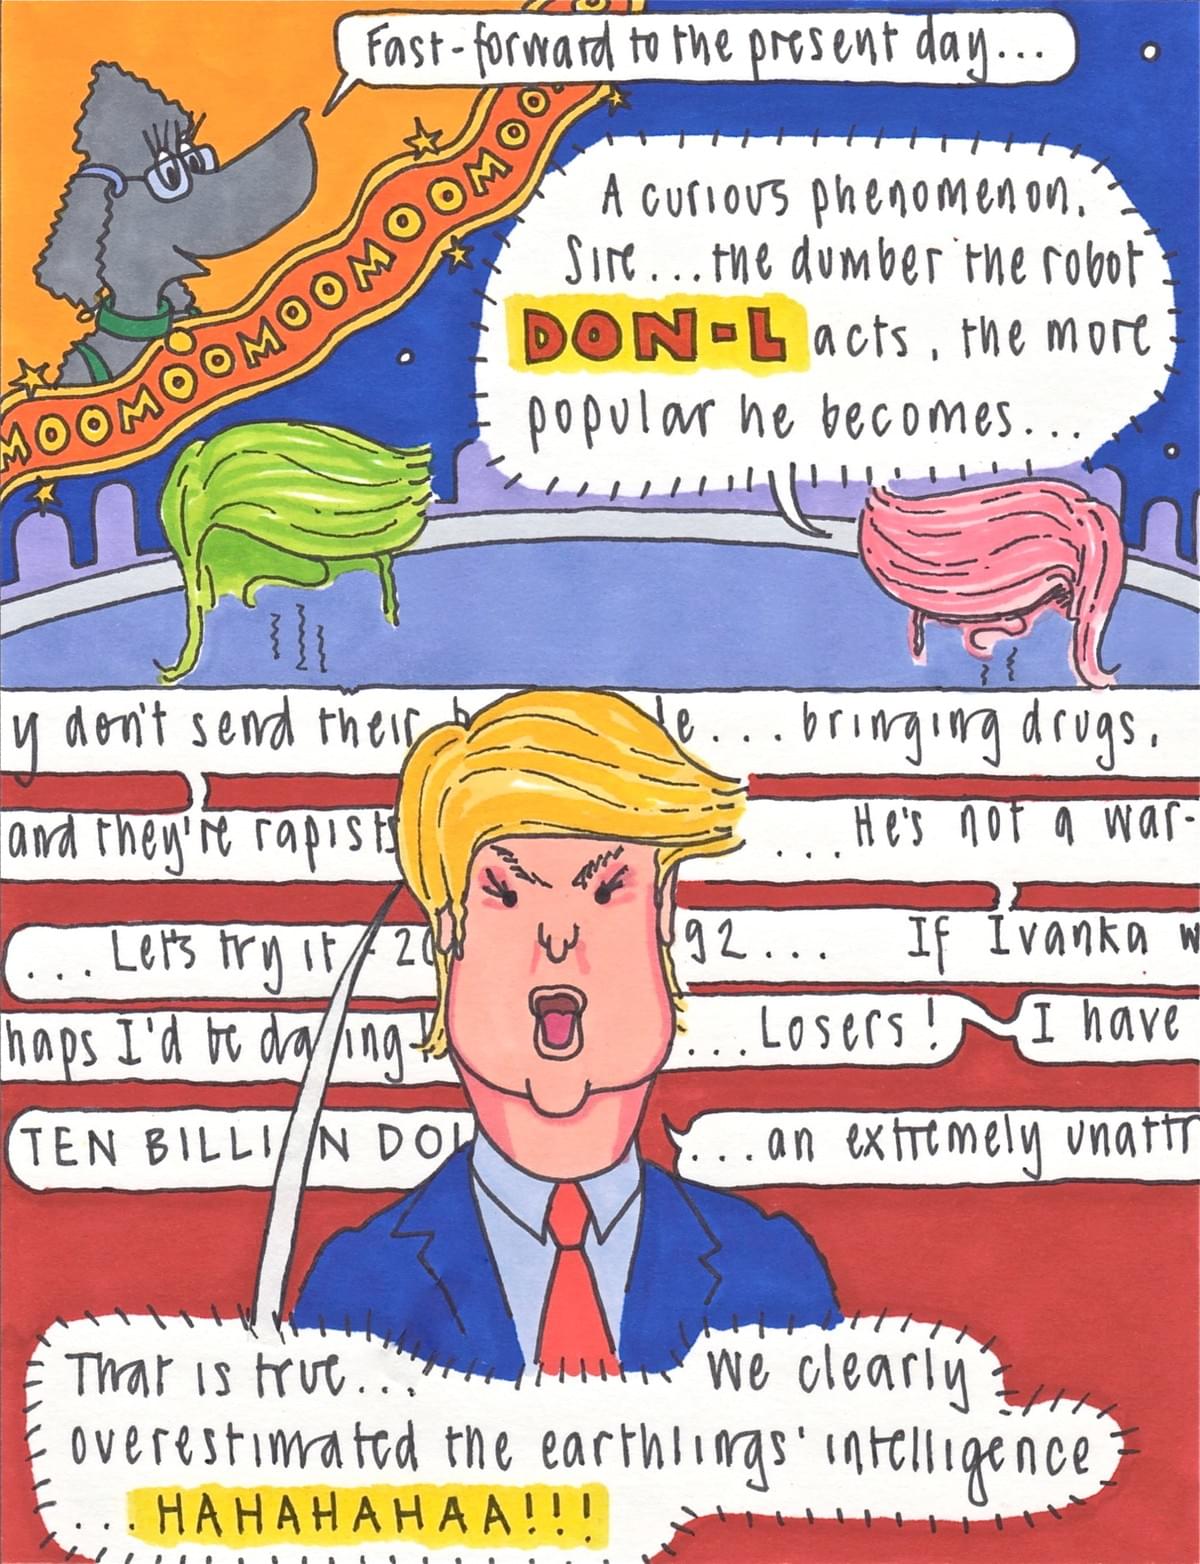 Fast-forward to the present day...
MOOMOOMOOMOOMOOMOO
A curious phenomenon,
Sire...the dumber the robot
DON-L acts, the more
popular he becomes...
y don't send their ... bringing drugs,
and they're rapists ...He's not a war-
...Let's try it 92... If Ivanka w
haps I'd be da ing ...Losers! I have
TEN BILLI N DO ...an extremely unattr
That is true... We clearly
overestimated the earthlings' intelligence
...HAHAHAHAA!!!